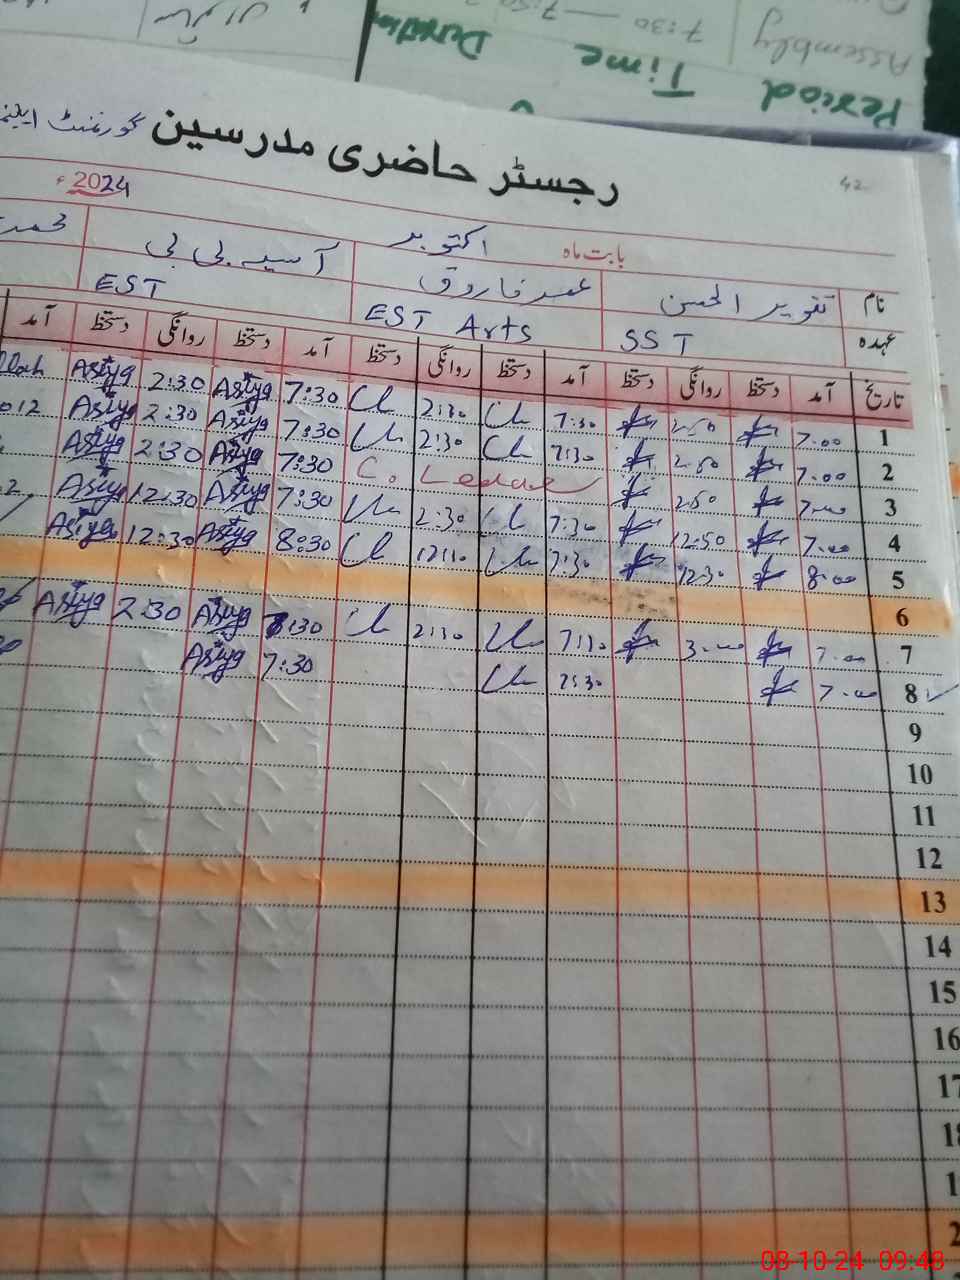 Period Time Duration
Assembly 7:30 — 7:50
رجسٹر حاضری مدرسین گورنمنٹ
42
بابت ماہ اکتوبر 2024ء
نام تنویر الحسن عمر فاروق آسیہ بی بی محمد
عہدہ SST EST Arts EST
تاریخ آمد دستخط روانگی دستخط آمد دستخط روانگی دستخط آمد دستخط روانگی دستخط آمد
1 7.00 2.50 7:30 2:30 7:30 Asiya 2:30 Asiya
2 7.00 2.50 7:30 2:30 7:30 Asiya 2:30 Asiya
3 7.00 2.50 C. Leave 7:30 Asiya 2:30 Asiya
4 7.00 12.50 7:30 2:30 7:30 Asiya 12:30 Asiya
5 8.00 12.30 7:30 12:10 8:30 Asiya 12:30 Asiya
6
7 7.00 3.00 7:30 2:30 7:30 Asiya 2:30 Asiya
8 7.00 7:30 7:30 Asiya
9
10
11
12
13
14
15
16
17
08-10-24 09:48